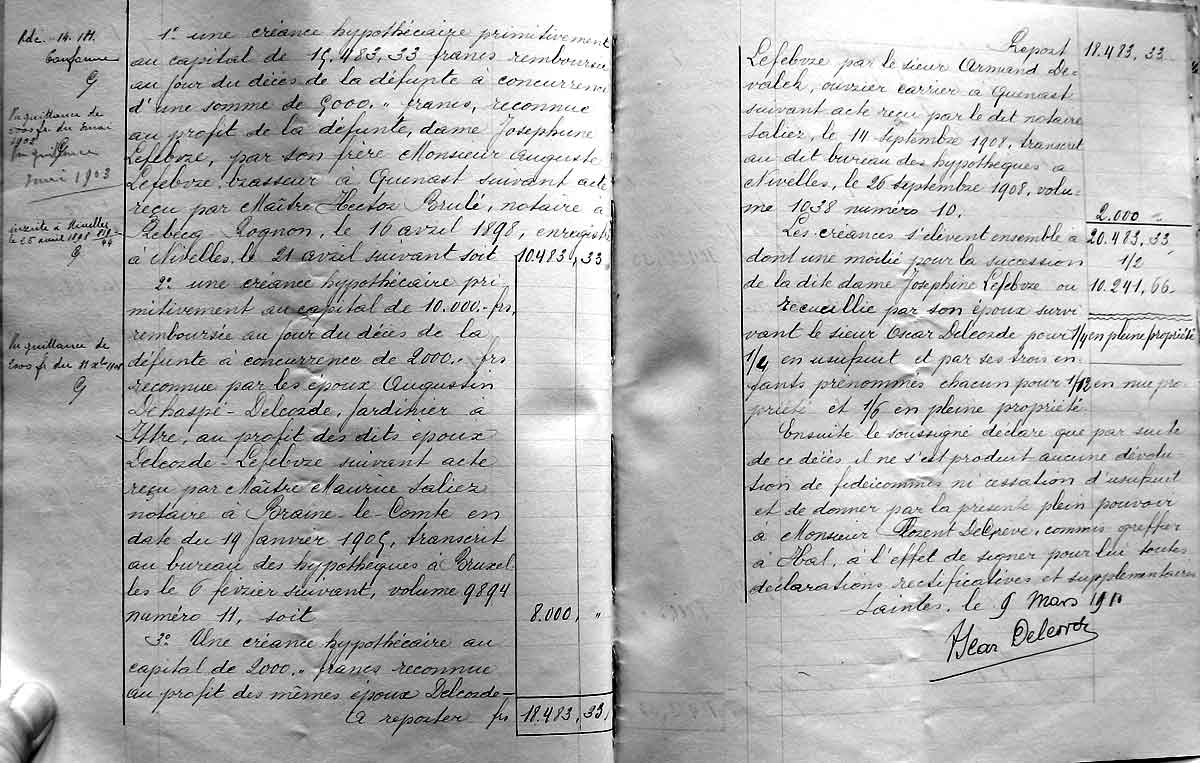 Rec. 14. 1H.
G
1° une créance hypothécaire primitivement
au capital de 15,483,33 francs remboursée
au jour du décès de la défunte à concurrence
d'une somme de 5000.,, francs, reconnue
au profit de la défunte, dame Josephine
Lefebvre, par son frère Monsieur Auguste
Lefebvre, brasseur à Quenast suivant acte
reçu par Maître Hector Brulé, notaire à
Rebecq Rognon, le 16 avril 1898, enregistré
à Nivelles, le 21 avril suivant soit 10.483,33
Par quittance de
du 2 mai
1903
2 mai 1903
inscrite à Nivelles
le 25 avril
G
2° une créance hypothécaire pri
mitivement au capital de 10.000.- frs,
remboursée au jour du décès de la
défunte à concurrence de 2000.,, frs
reconnue par les époux Augustin
Dehaspé-Delcorde, Jardinier à
Ittre, au profit des dits époux
Delcorde-Lefebvre suivant acte
reçu par Maître Maurice Saliez
notaire à Braine-le-Comte en
date du 19 Janvier 1905, transcrit
au bureau des hypothèques à Bruxel
les le 6 février suivant, volume 9894
numéro 11, soit 8.000, "
Par quittance de
2000 fr du 11 Xbre
G
3° Une créance hypothécaire au
capital de 2000.,, francs reconnue
au profit des mêmes époux Delcorde-
A reporter frs 18.483,33,
Report 18.483,33
Lefebvre par le sieur Armand De-
valck, ouvrier carrier à Quenast
suivant acte reçu par le dit notaire
Saliez, le 14 Septembre 1908, transcrit
au dit bureau des hypothèques à
Nivelles, le 26 septembre 1908, volu-
me 1038 numéro 10. 2.000 "
Les créances s'élèvent ensemble à 20.483,33
dont une moitié pour la succession 1/2
de la dite dame Josephine Lefebvre ou 10.241,66-
recueillie par son époux survi
vant le sieur Oscar Delcorde pour 1/4 en pleine propriété
1/4 en usufruit et par ses trois en
fants prénommés chacun pour 1/12 en nue pro-
priété et 1/6 en pleine propriété
Ensuite le soussigné déclare que par suite
de ce décès il ne s'est produit aucune dévolu
tion de fideicommis ni cessation d'usufruit
et de donner par la présente plein pouvoir
à Monsieur Florent DeGreve, commis greffier
à Hal, à l'effet de signer pour lui toutes
déclarations rectificatives et supplémentaires
Saintes, le 9 Mars 1911
Oscar Delcorde